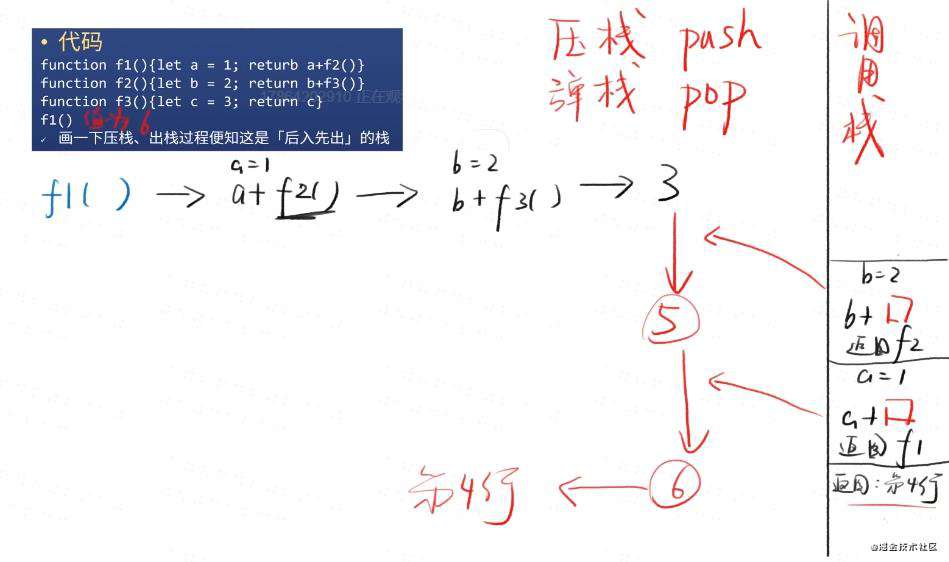 • 代码
function f1(){let a = 1; returb a+f2()}
function f2(){let b = 2; return b+f3()}
function f3(){let c = 3; return c}
f1() 值为 6
✓ 画一下压栈、出栈过程便知这是「后入先出」的栈
压栈 push
弹栈 pop
调用栈
a=1
b=2
f1( ) → a+f2() → b+f3() → 3
5
6
第4行 ←
b=2
b+口
返回f2
a=1
a+口
返回f1
返回:第4行
@掘金技术社区